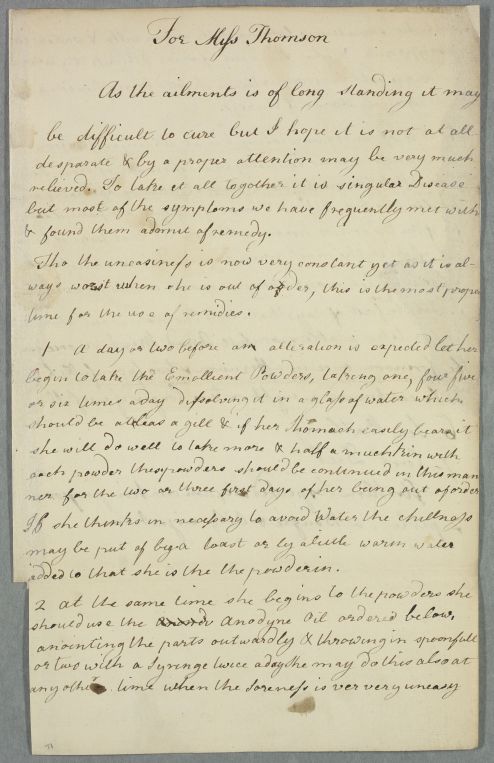 For Miss Thomson
As the ailments is of long standing it may
be difficult to cure but I hope it is not at all
desparate & by a proper attention may be very much
relieved. To take it all together it is singular Disease
but most of the symptoms we have frequently met with
& found them admit of remedy.
Tho the uneasiness is now very constant yet as it is al-
ways worst when she is out of order, this is the most proper
time for the use of remidies.
1 A day or two before an alteration is expected let her
begin to take the Emollient Powders, taking one, four five
or six times a day dissolving it in a glass of water which
should be at leas a gill & if her stomach easily bears it
she will do well to take more & half a muchkin with
each powder these powders should be continued in this man
ner for the two or three first days of her being out of order
If she thinks in necessary to avoid Water the chillness
may be put of by a toast or by a little warm water
added to that she is the the powder in.
2 at the same time she begins to the powders she
should use the Anodyne Oil ordered below,
anointing the parts outwardly & throwing in spoonfull
or two with a Syringe twice a day She may do this also at
any other time when the soreness is ver very uneasy
71